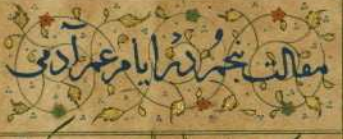 مقالت پنجم در ایام عمر آدمی